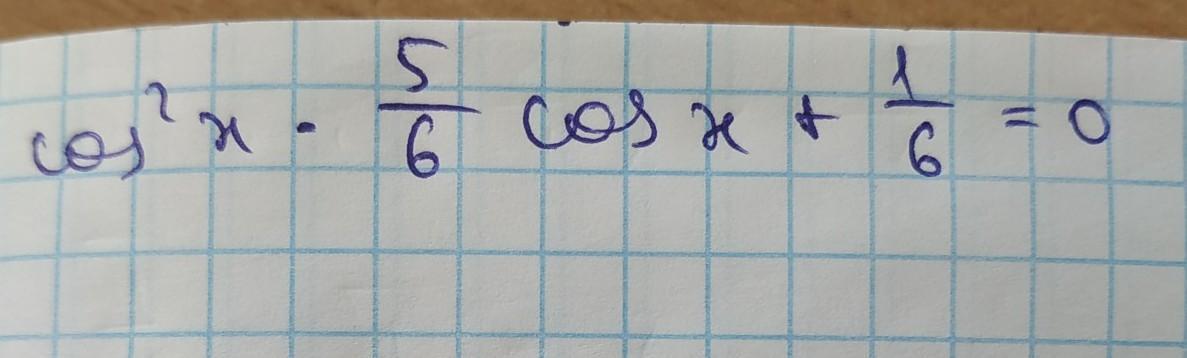 cos² x - 5/6 cos x + 1/6 = 0